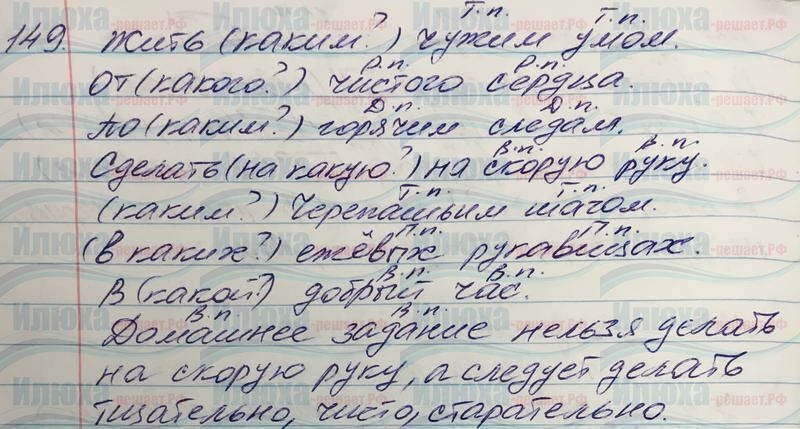 149. Жить (каким?) чужим умом.
От (какого?) чистого сердца.
По (каким?) горячим следам.
Сделать (на какую?) на скорую руку.
(каким?) Черепашьим шагом.
(в каких?) ежёвых рукавицах.
В (какой?) добрый час.
Домашнее задание нельзя делать
на скорую руку, а следует делать
тщательно, чисто, старательно.